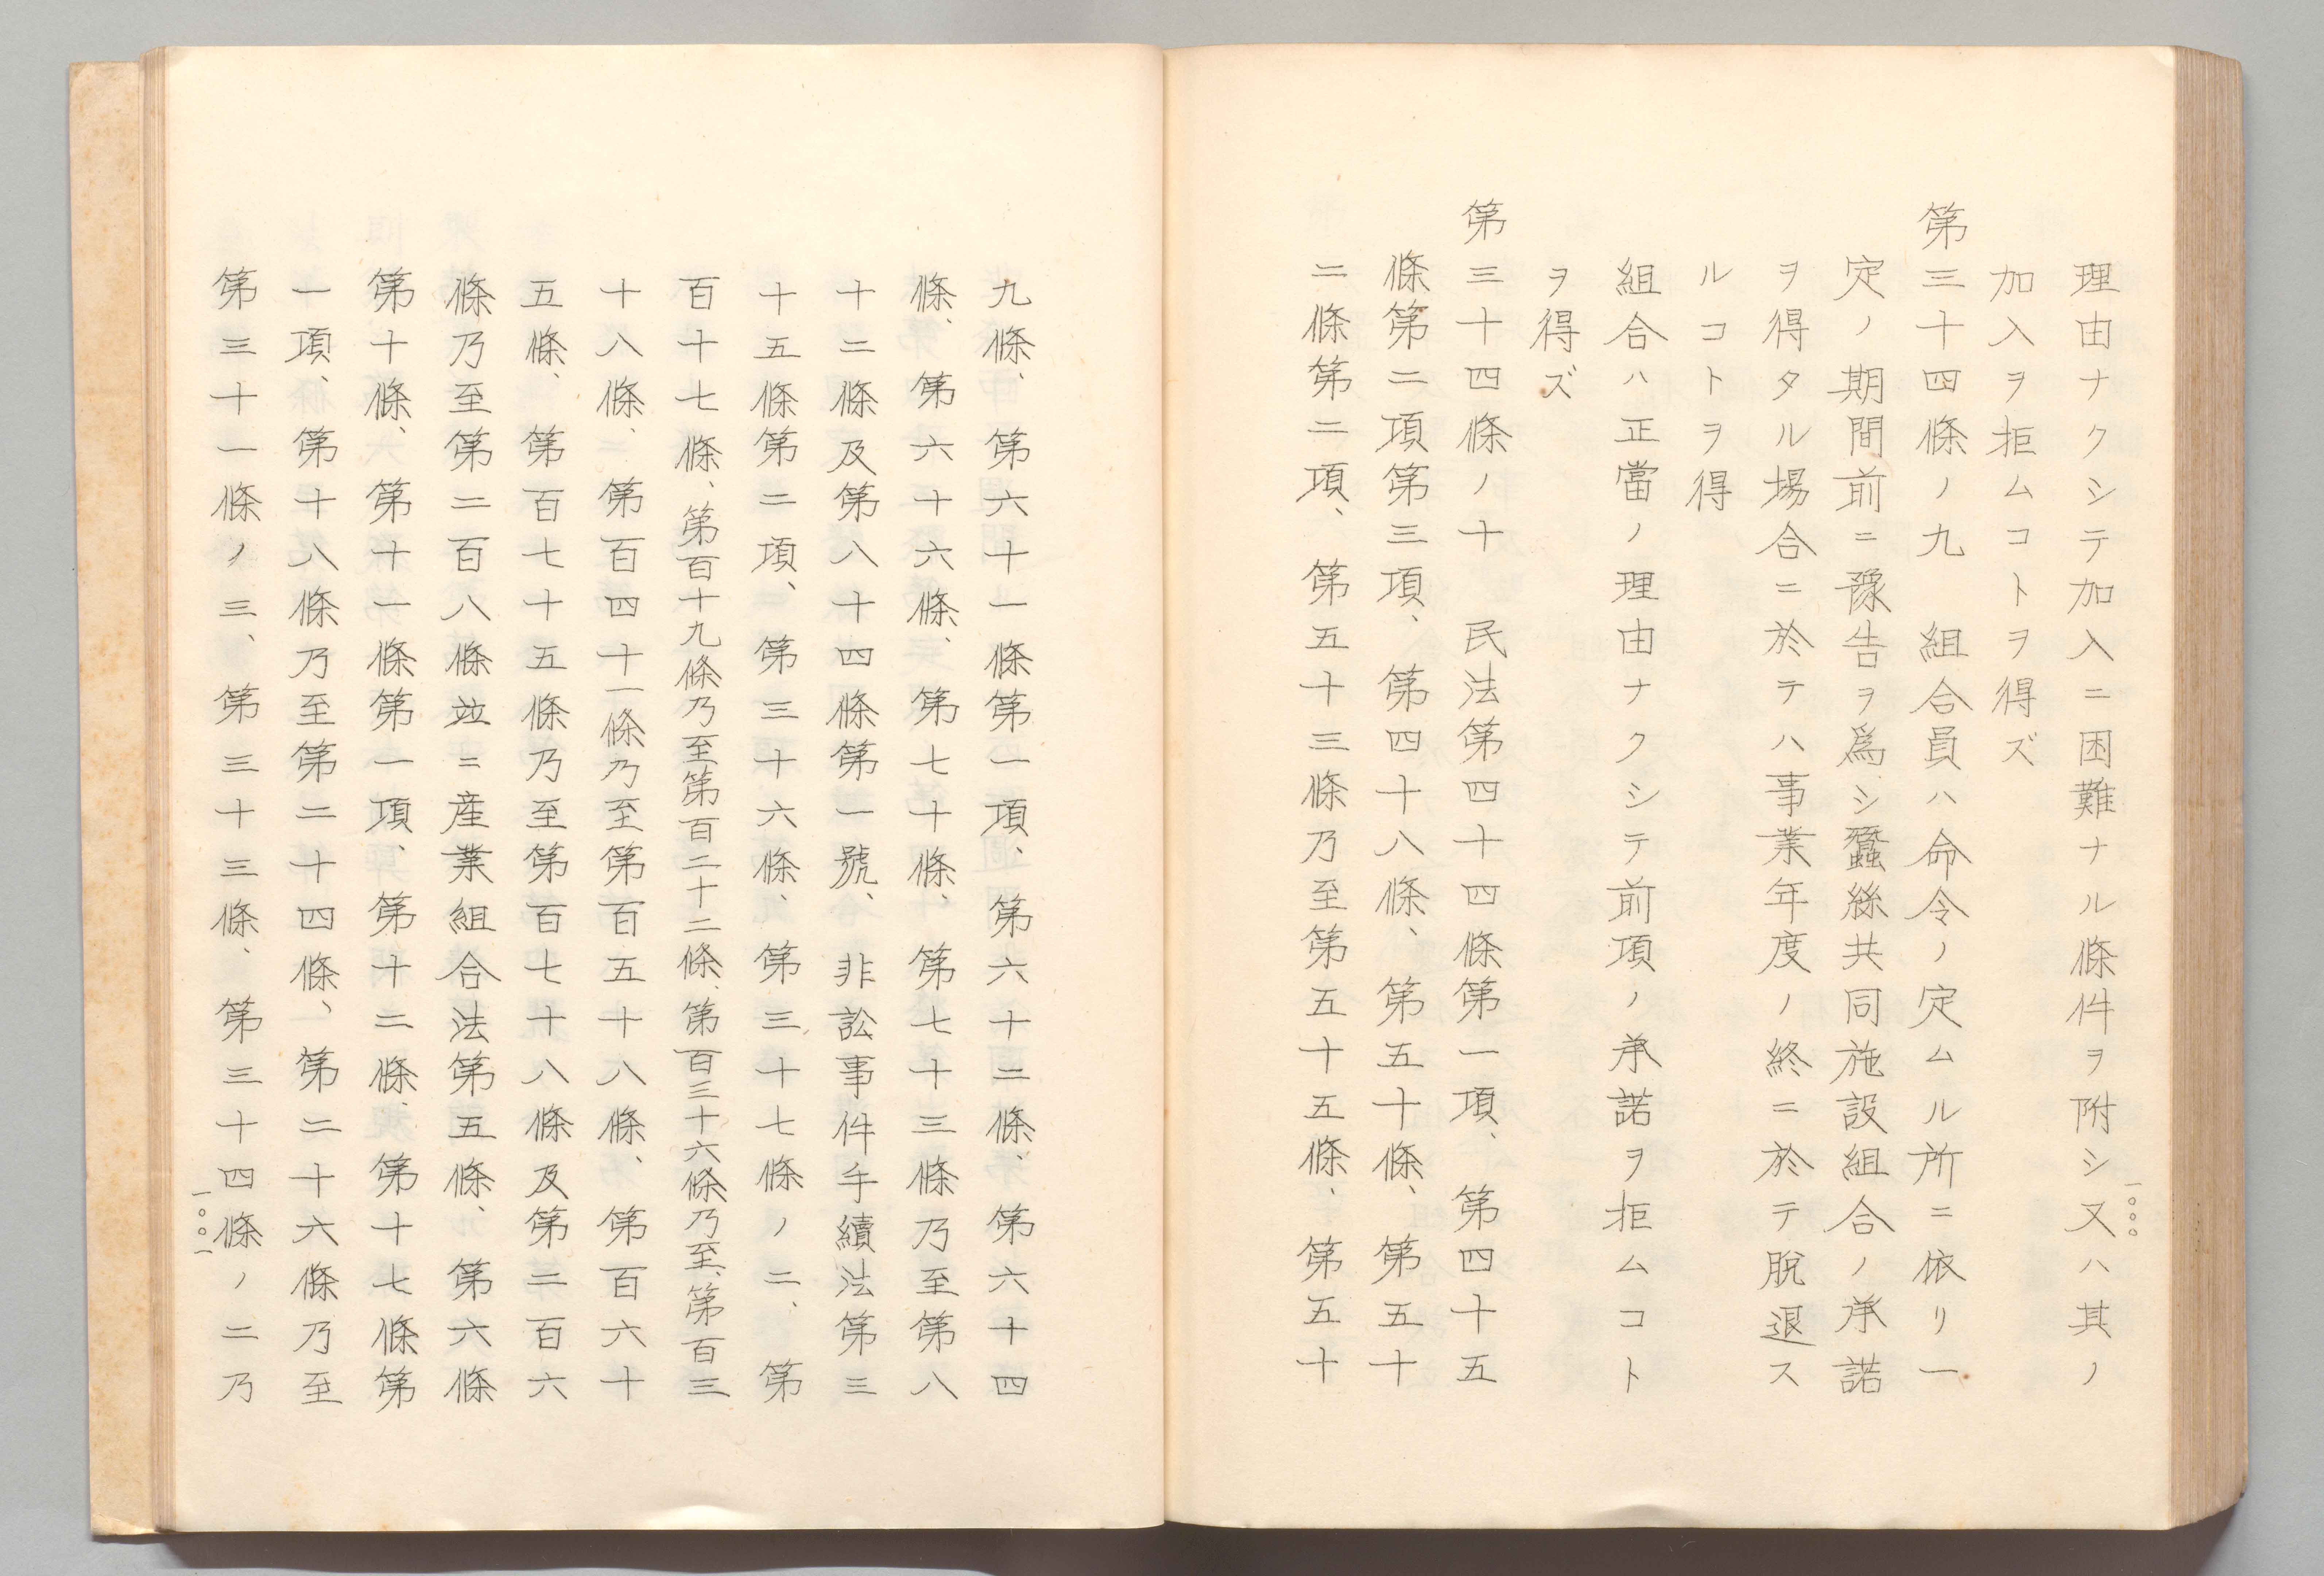 理由ナクシテ加入ニ困難ナル條件ヲ附シ又ハ其ノ
加入ヲ拒ムコトヲ得ズ
第三十四條ノ九　組合員ハ命令ノ定ムル所ニ依リ一
定ノ期間前ニ豫告ヲ爲シ蠶絲共同施設組合ノ承諾
ヲ得タル場合ニ於テハ事業年度ノ終ニ於テ脫退ス
ルコトヲ得
組合ハ正當ノ理由ナクシテ前項ノ承諾ヲ拒ムコト
ヲ得ズ
第三十四條ノ十　民法第四十四條第一項、第四十五
條第二項第三項、第四十八條、第五十條、第五十
二條第二項、第五十三條乃至第五十五條、第五十
一〇〇〇
九條、第六十一條第一項、第六十二條、第六十四
條、第六十六條、第七十條、第七十三條乃至第八
十二條及第八十四條第一號、非訟事件手續法第三
十五條第二項、第三十六條、第三十七條ノ二、第
百十七條、第百十九條乃至第百二十二條、第百三十六條乃至第百三
十八條、第百四十一條乃至第百五十八條、第百六十
五條、第百七十五條乃至第百七十八條及第二百六
條乃至第二百八條竝ニ產業組合法第五條、第六條
第十條、第十一條第一項、第十二條、第十七條第
一項、第十八條乃至第二十四條、第二十六條乃至
第三十一條ノ三、第三十三條、第三十四條ノ二乃
一〇〇一